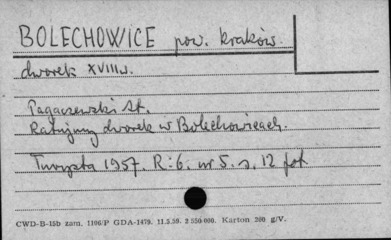 BOLECHOWICE pow. kraków.
dworek XVIII w.
Pagaczewski St.
Ratujmy dworek w Bolechowicach.
Turysta 1957. R: 6. nr 5. s. 12 fot.
CWD-B-15b zam. 1106/P GDA-1479. 11.5.59. 2 550 000. Karton 200 g/V.